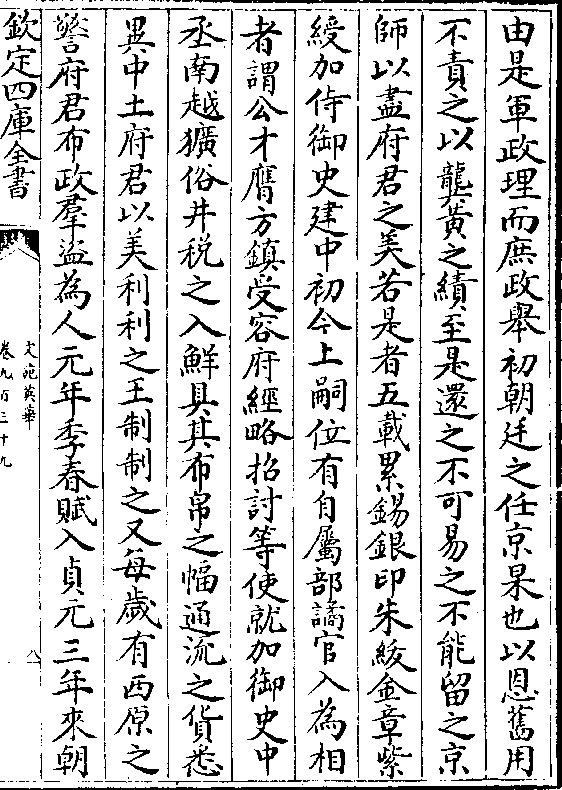 由是軍政理而庶政舉初朝廷之任京杲也以恩舊用
不責之以龔黃之績至是還之不可易之不能留之京
師以盡府君之美若是者五載累錫銀印朱紱金章紫
綬加侍御史建中初今上嗣位有自屬部謫官入為相
者謂公才膺方鎮受容府經略招討等使就加御史中
丞南越獷俗井税之入鮮具其布帛之幅通流之貨悉
異中土府君以美利利之王制制之又每歲有西原之
警府君布政羣盜為人元年季春賦入貞元三年來朝
欽定四庫全書
文苑英華
卷九百三十九
八